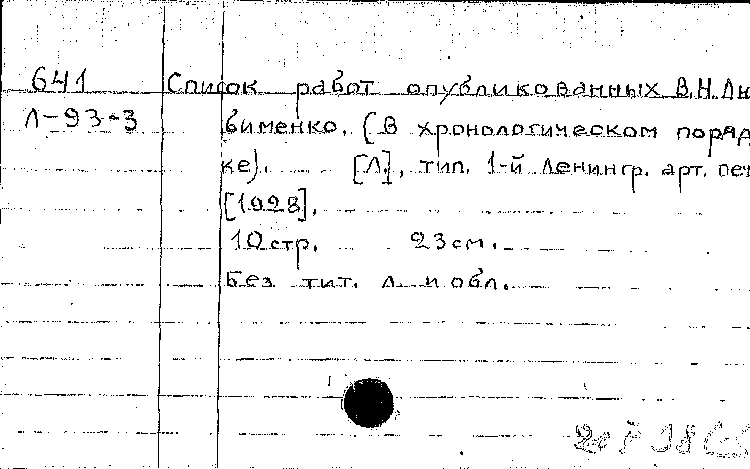 641 Список работ опубликованных В.Н.Лю
Л-93-3 бименко. (В хронологическом поряд
ке). [Л], тип. 1-й Ленингр. арт. печ
[1928].
10 стр. 23 см.
Без тит. л. и обл.